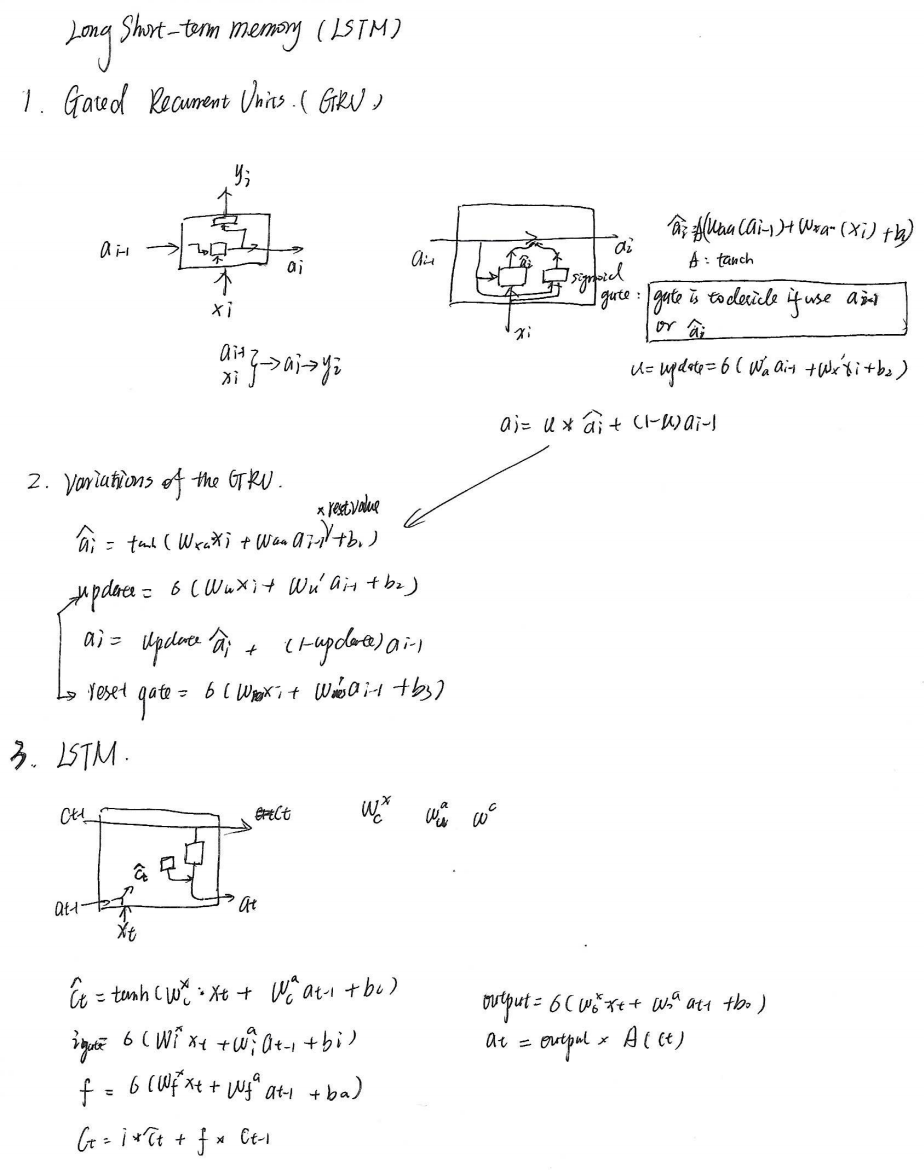 Long Short-term memory (LSTM)
1. Gated Recurrent Units. (GRU)
y_i
a_{i-1}
a_i
x_i
a_{i-1}
x_i } → a_i → y_i
a_{i-1}
â_i
a_i
sigmoid
x_i
â_i = A(W_{aa}(a_{i-1}) + W_{xa}(x_i) + b_1)
A : tanch
gate : gate is to decide if use a_{i-1}
or â_i
u = update = 6 (W'_a a_{i-1} + W_x' x_i + b_2)
a_i = u * â_i + (1-u) a_{i-1}
2. Variations of the GRU.
x reset value
â_i = tanh (W_{xa} x_i + W_{aa} a_{i-1} + b_1)
update = 6 (W_u x_i + W_u' a_{i-1} + b_2)
a_i = update â_i + (1-update) a_{i-1}
reset gate = 6 (W x_i + W' a_{i-1} + b_3)
3. LSTM.
C_{t-1}
C_t
ĉ_t
a_{t-1}
a_t
x_t
W_c^x W^a W^c
ĉ_t = tanh (W_c^x · x_t + W_c^a a_{t-1} + b_c)
i gate = 6 (W_i^x x_t + W_i^a a_{t-1} + b_i)
f = 6 (W_f^x x_t + W_f^a a_{t-1} + b_a)
C_t = i * ĉ_t + f x C_{t-1}
output = 6 (W_o^x x_t + W_o^a a_{t-1} + b_o)
a_t = output x A (C_t)